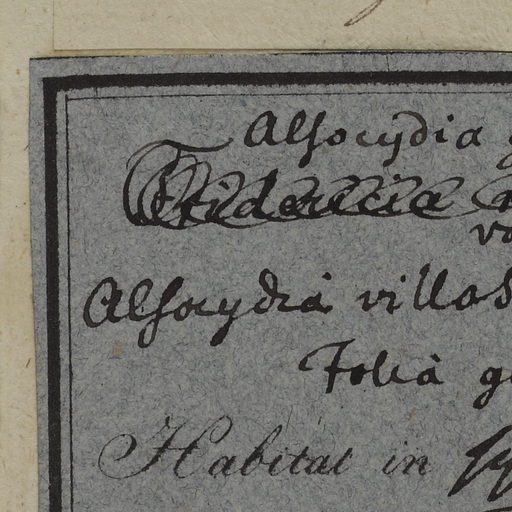 Alsocydia
Fridericia
Alsocydia villos
Folia g
Habitat in